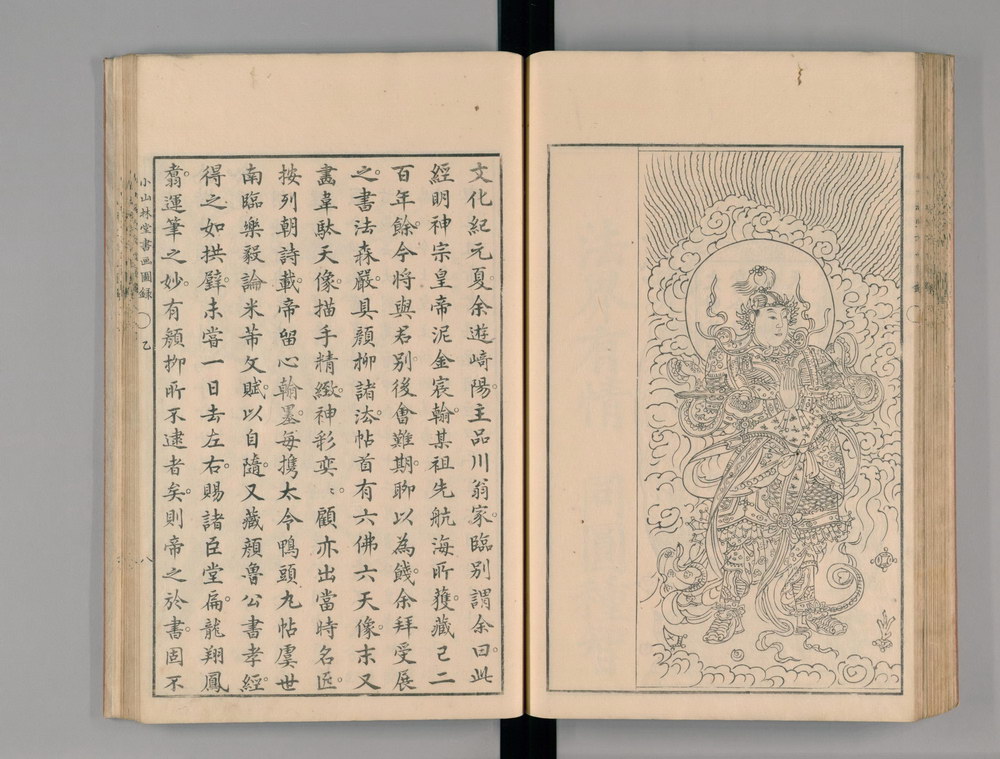 文化紀元夏余遊崎陽。主品川翁家。臨別謂余曰。此
經明神宗皇帝泥金宸翰。某祖先航海所獲。藏已二
百年餘。今將與君別。後會難期。聊以為餞。余拜受展
之。書法森嚴。具顏柳諸法。帖首有六佛六天像。末又
畫韋馱天像。描手精緻。神彩奕〻。顧亦出當時名匠。
按列朝詩載。帝留心翰墨。每攜太令鴨頭丸帖虞世
南臨樂毅論米芾文賦以自隨。又藏顏魯公書孝經。
得之如拱璧。未嘗一日去左右。賜諸臣堂扁。龍翔鳳
翥。運筆之妙。有顏柳所不逮者矣。則帝之於書。固不
小山林堂書画圖錄
己
八